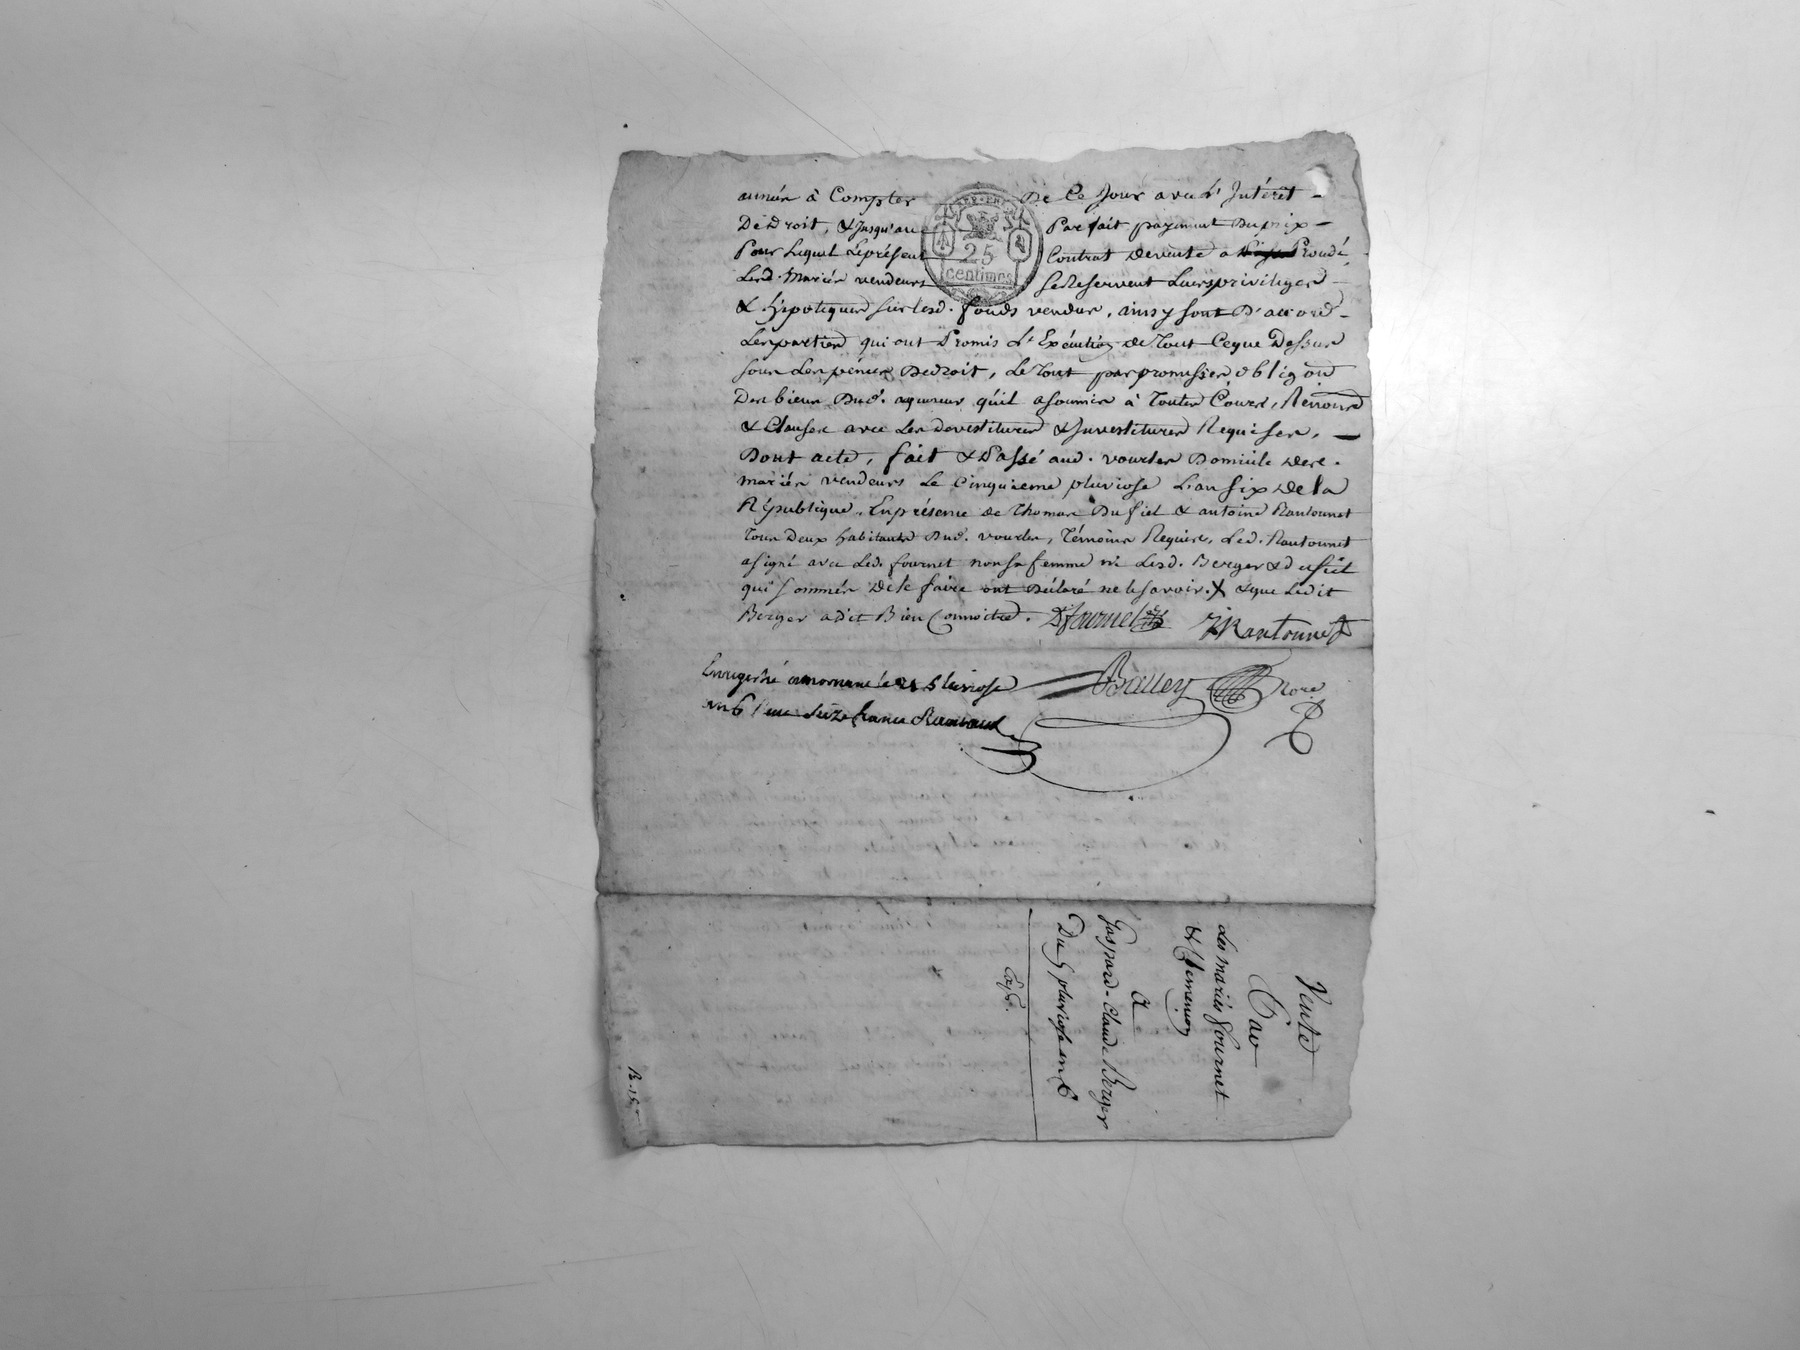 année à Compter De Ce Jour avec L'Intérêt -
De Droit, & Jusqu'au Parfait payement Du prix -
Pour Lequel Le présent Contrat de vente a Procédé,
Lesd. Mariés vendeurs se Reservent Leurs privileges -
& hipoteques sur lesd. fonds vendus, ainsy sont D'accord -
Les parties qui ont Promis L'Exécution de Tout Ceque Dessus
sous Les peines De droit, Le Tout par promission oblig on
Des biens Dud. aquereur qu'il a soumis à Toutes Cours, Renons
& Clauses avec Les devestitures & Investitures Requises, -
Dont acte, fait & Passé aud. vourles Domicile desd.
mariés vendeurs Le Cinquieme pluviose L'an six de la
République, En présence de Thomas Dufiel & antoine Rantonnet
Tous Deux habitants Dud. vourles, Témoins Requis, Led. Rantonnet
a signé avec Led. fournet non sa femme ni Lesd. Berger & dufiel
qui sommés de le faire ont Déclaré ne le savoir. X & que Ledit
Berger a dit Bien Connoitre. fournel Rantonnet
Enregistré a mornant le 21 Pluviose Balley Nore
an 6 seize francs
25
centimes
Vente
Par
Les mariés fournet
&
a
Gaspard-Claude Berger
Du 5 pluviose an 6
Exp.